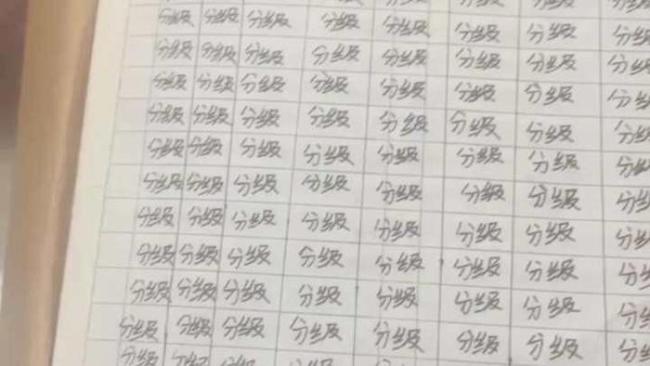 分级 分级 分级 分级 分级 分级 分级 分级
分级 分级 分级 分级 分级 分级 分级 分级
分级 分级 分级 分级 分级 分级 分级 分级
分级 分级 分级 分级 分级 分级 分级 分级
分级 分级 分级 分级 分级 分级 分级 分级
分级 分级 分级 分级 分级 分级 分级 分级
分级 分级 分级 分级 分级 分级 分级 分级
分级 分级 分级 分级 分级 分级 分级 分级
分级 分级 分级 分级 分级 分级 分级 分级
分级 分级 分级 分级 分级 分级 分级 分级
分级 分级 分级 分级 分级 分级 分级 分级